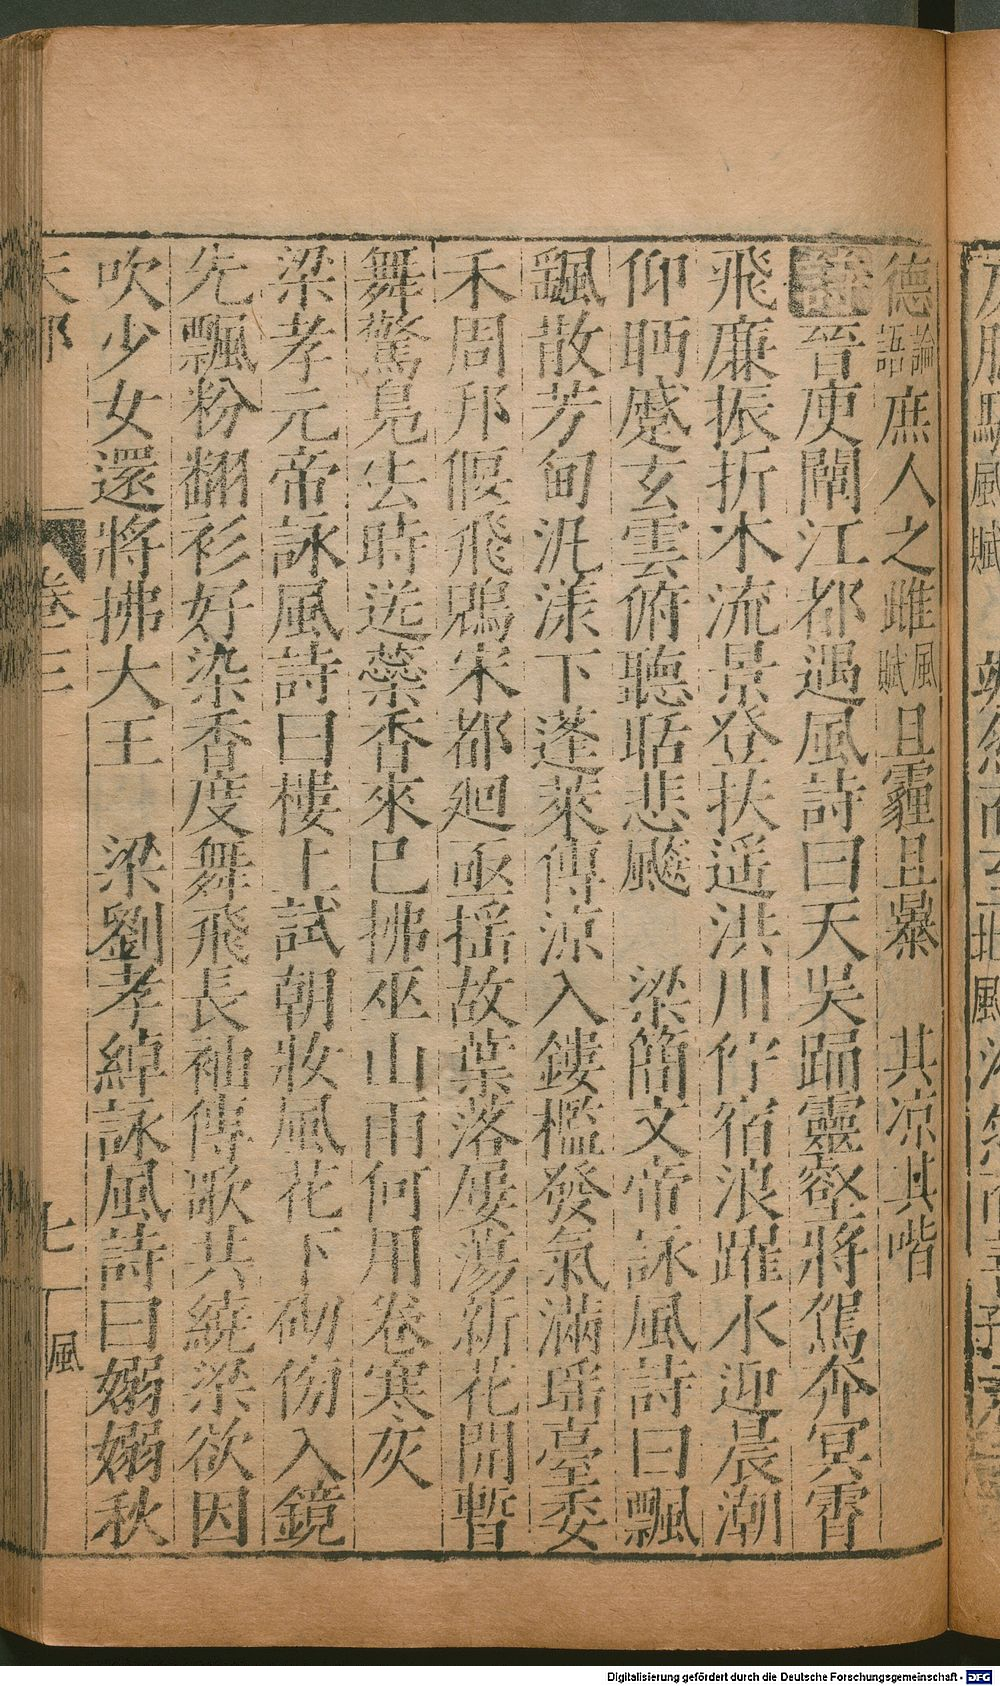 德論語庶人之雌風賦且霾且暴　共凉其喈
詩晉庾闡江都遇風詩曰天吳踊靈壑將駕奔冥霄
飛廉振折木流景登扶遥洪川佇宿浪躍水迎晨潮
仰眄蹙玄雲俯聽聒悲飇　梁簡文帝詠風詩曰飄
颻散芳甸泚漾下蓬萊傳涼入鏤檻發氣滿瑶臺委
禾周邦偃飛鶂宋都廻亟揺故葉落屢蕩新花開暫
舞驚鳧去時送蘂香來已拂巫山雨何用卷寒灰
梁孝元帝詠風詩曰樓上試朝妝風花下砌傍入鏡
先飄粉翻衫好染香度舞飛長袖傳歌共繞梁欲因
吹少女還將拂大王　梁劉孝綽詠風詩曰嫋嫋秋
天部　卷三　七　風
Digitalisierung gefördert durch die Deutsche Forschungsgemeinschaft - DFG